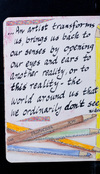 An artist transforms
us, brings us back to
our senses by opening
our eyes and ears to
another reality, or to
this reality - the
world around us that
we ordinarily don't see.